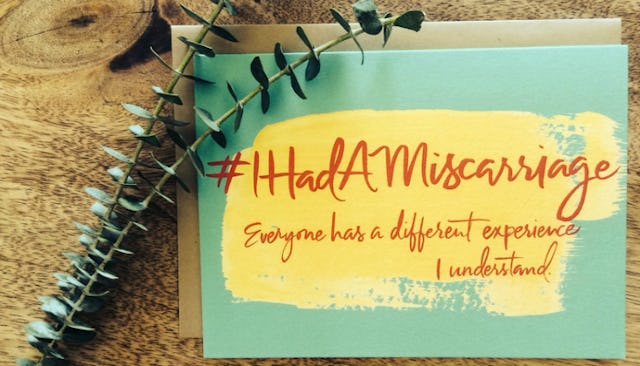 #IHadAMiscarriage
Everyone has a different experience
I understand.